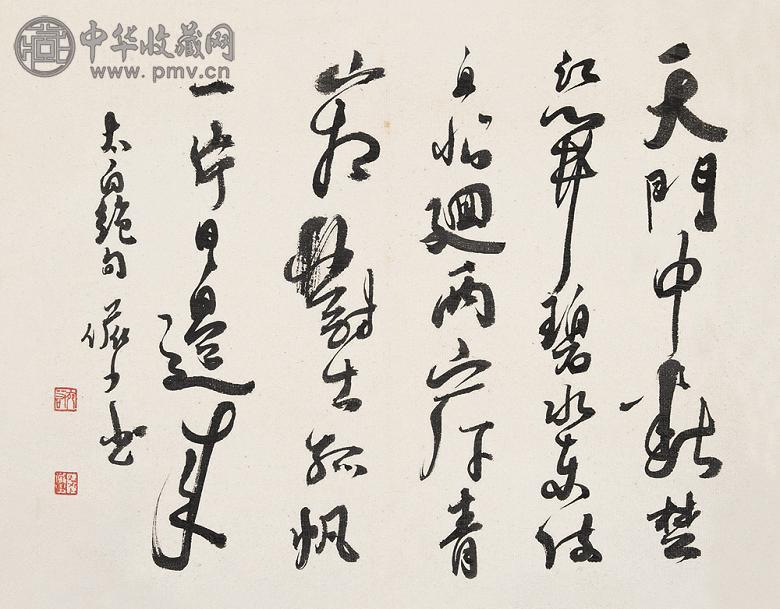 中华收藏网
www.pmv.cn
天門中斷楚
江開碧水東流
至此廻兩岸青
山相對出孤帆
一片日邊來
太白絕句 儼少書